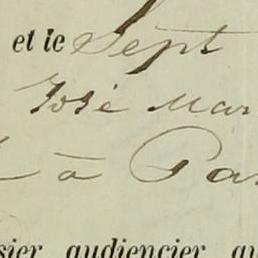 et le Sept
José Mar
à Par
sier audiencier au